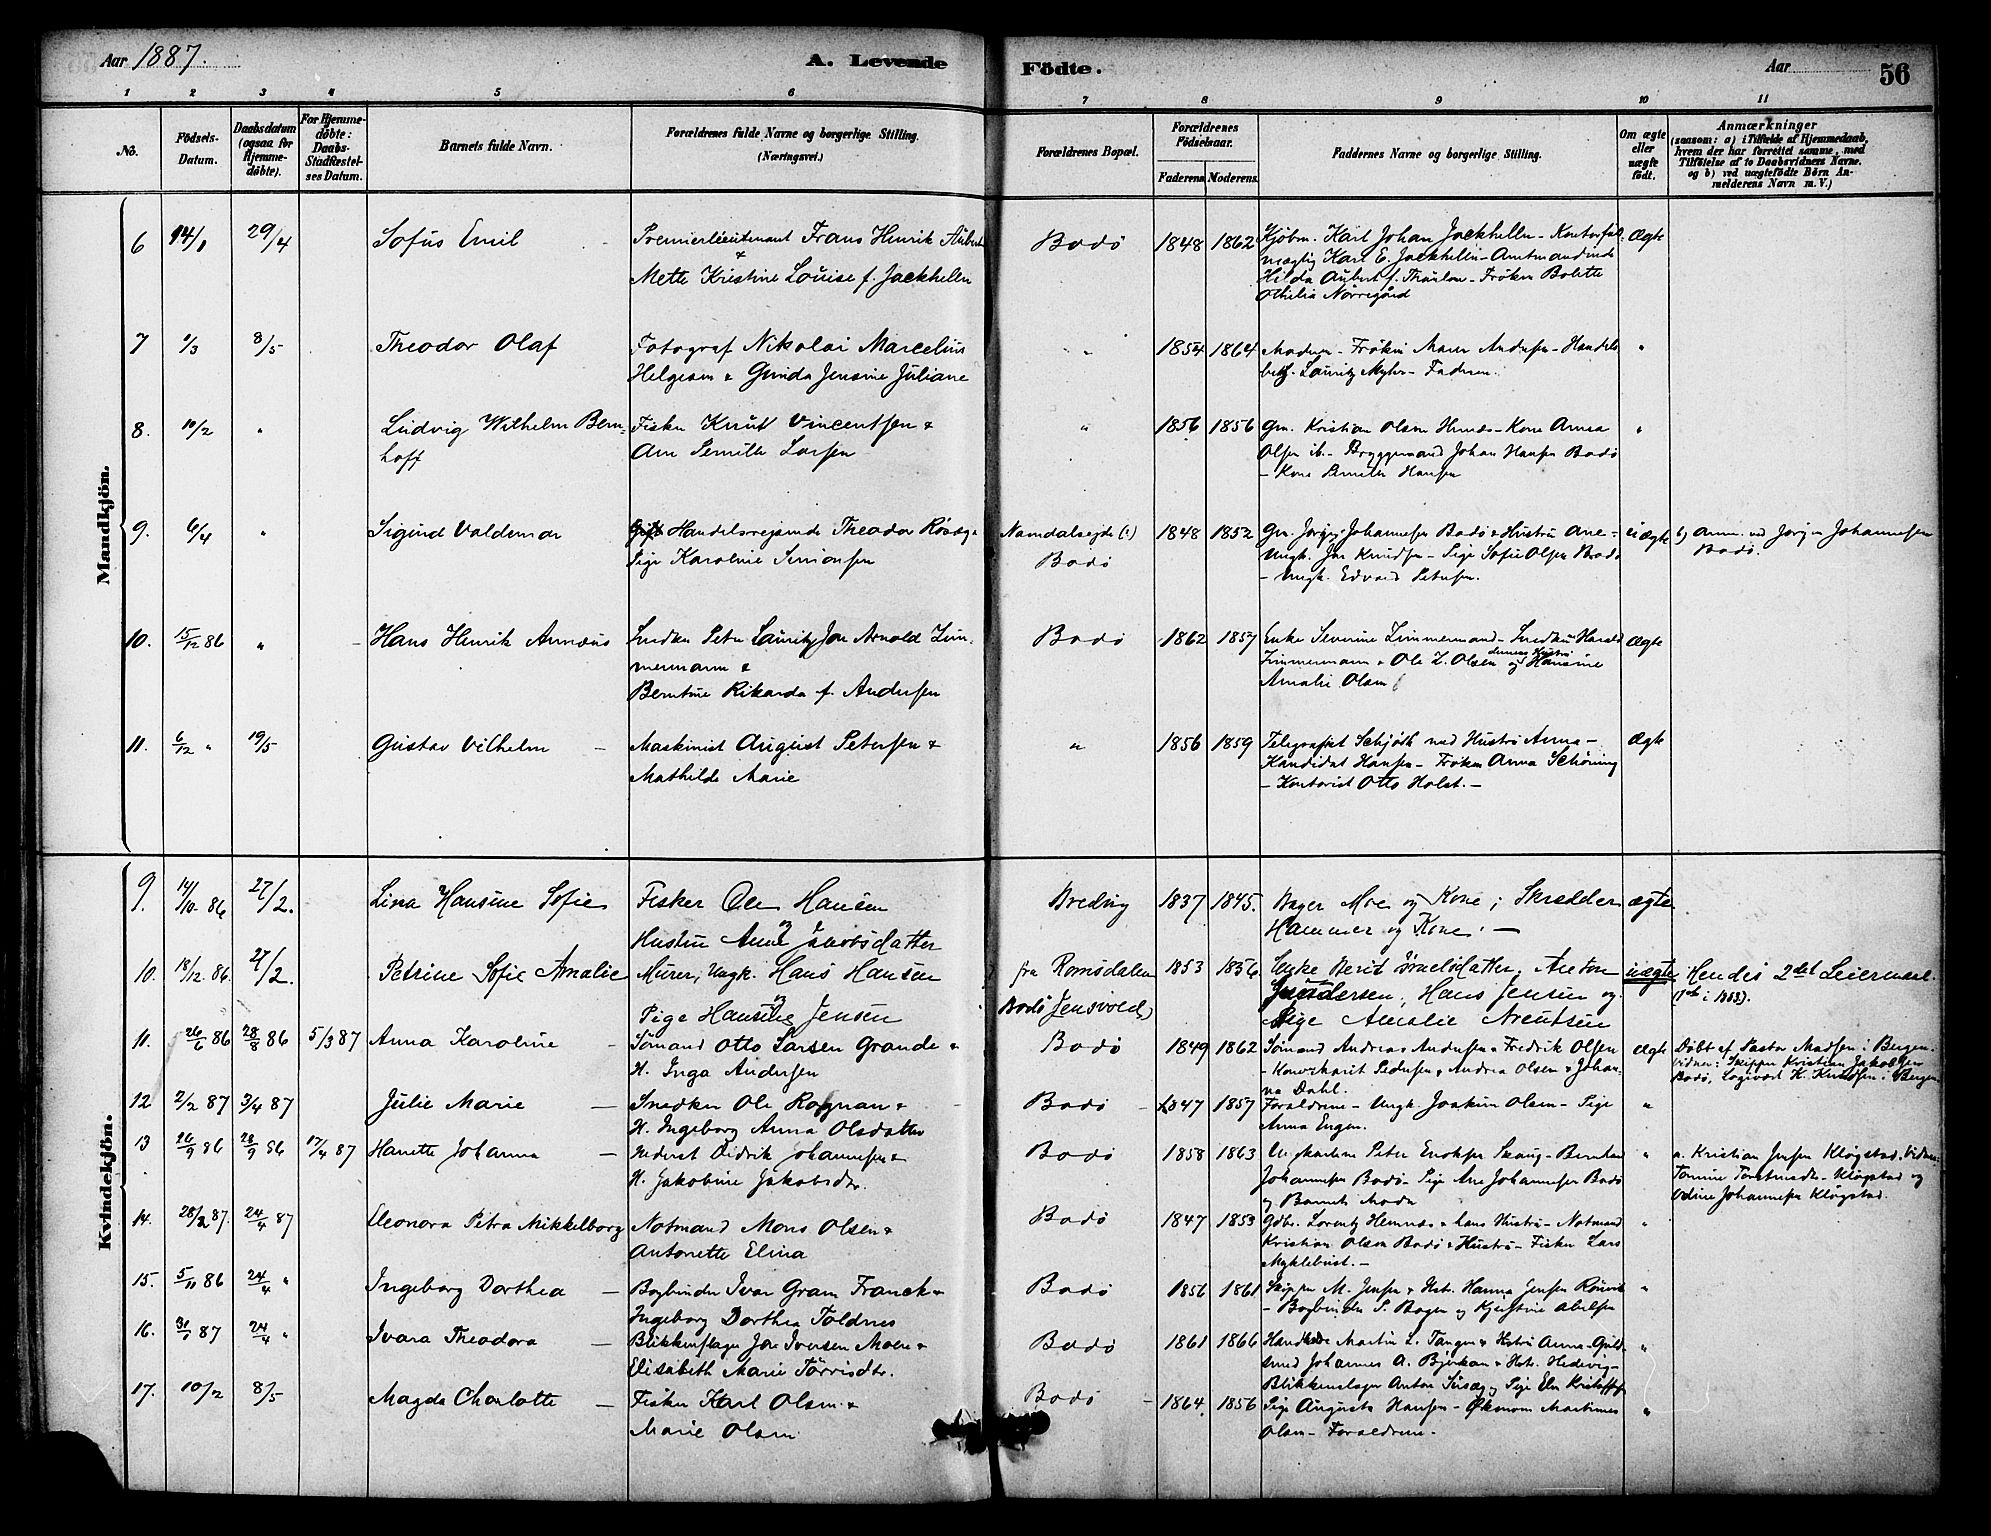 Aar 1887.
A. Levende Födte.
Aar
56
1 2 3 4 5 6 7 8 9 10 11
No.
Födsels-Datum.
Daabsdatum (ogsaa for Hjemme-döbte).
For Hjemme-döbte: Daabs-Stadfæstel-ses Datum.
Barnets fulde Navn.
Forældrenes fulde Navne og borgerlige Stilling. (Næringsvei.)
Forældrenes Bopæl.
Forældrenes Födselsaar.
Faderens. Moderens.
Faddernes Navne og borgerlige Stilling.
Om ægte eller uægte födt.
Anmærkninger
(saasom: a) i Tilfælde af Hjemmedaab, hvem der har forrettet samme, med Tilföielse af to Daabsvidners Navne. og b) ved uægtefödte Börn An-melderens Navn m. V.)
Mandkjön.
6 14/1 29/4 Sofus Emil Premierlieutenant Frans Henrik Aubert & Bodø 1848 1862 Kjøbm. Karl Johan Jackhelln - Kontorful- Ægte
Mette Kristine Louise f. Jackhelln mægtig Karl E. Jackhelln - Amtmandinde
Hilda Aubert f. Thaulow - Frøken Bolette
Othilia Nörregård
7 8/5 Theodor Olaf Fotograf Nikolai Marcelius " 1854 1864 Moderen - Frøken Maren Andersen - Handels "
Helgesen & Gunda Jensine Juliane betj. Lauritz Myhre - Faderen.
8. 10/2 " Ludvig Wilhelm Bern= Fisker Knut Vincentsen & " 1856 1856 Gm. Kristian Olsen Hernæs - Kone Anna "
hoff Ane Pernille Larsen Olsen ib. - Bryggemand Johan Hansen Bodø
- Kone Hansen
9. 6/4 " Sigurd Valdemar Handelsrejsende Theodor & Namdalsejde (?) 1848 1852 Gm. Jørgen Johannesen Bodø & Hustru Ane - uægte b) Anm. ved Jørgen Johannesen
Pige Karoline Simonsen Bodø Ungk. Knudsen - Pige Sofie Olsen Bodø Bodø.
- Ungk. Edvard Petersen.
10. 15/12 86 " Hans Henrik Arnæus Snedker Peter Lauritz Arnold Zim- Bodø 1862 1857 Enke Severine Zimmermand - Snedker Harald Ægte
mermann & Zimmermann & Ole Z. Olsen og dennes Hustru Hansine
Berntine Rikarda f. Andersen Amalie Olsen
11. 6/12 " 19/5 Gustav Vilhelm Maskinist August Petersen & " 1856 1859 Telegrafist Schjøth med Hustru Anna - Ægte
Mathilde Marie Kandidat Hansen - Frøken Anna Schöning
- Kontorist Otto Holst. -
Kvindekjön.
9. 14/10 86 27/2. Lina Hansine Sofie Fisker Ole Hansen og Breding 1837 1845. Bager Moe og Kone; Skrædder ægte
Hustru Anne Jakobsdatter Hammer og Kone. -
10. 18/12 86. 27/2. Petrine Sofie Amalie Murer, Ungk. Hans Hansen og fra Romsdalen 1853 1856 Enke Berit Israelsdatter, Anton uægte Hendes 2det Leiermaal.
Pige Hansine Jensen Bodø (Jensvold) Gundersen, Hans Jensen og
Pige Amalie Arentsen
11. 26/6 86 28/8 86 5/3 87 Anna Karoline Sømand Otto Larsen Grande & Bodø 1849 1862 Sømand Andreas Andersen & Fredrik Olsen Ægte Döbt af Pastor Madsen i Bergen.
H. Inga Andersen Pedersen & Andrea Olsen & Johan- Vidner: Skipper Kristian Jakobsen
na Dahl. Bodø, Logivært K. Knudsen i Bergen
12 2/2 87 3/4 87 Julie Marie Snedker Ole Rognan & Bodø 1847 1857 Forældrene - Ungk. Joakim Olsen - Pige "
H. Ingeborg Anna Olsdatter Anna Engen.
13 26/9 86 28/9 86 17/4 87 Hanette Johanna Didrik Johannesen & Bodø 1858 1863 Ungkarlene Peter Enoksen Skaug - Bernhard " a. Kristian Jensen Kløgstad. Vidner:
H. Jakobine Jakobsdtr. Johannesen Bodø - Pige Ane Johannesen Bodø Kløgstad og
og Barnets Moder Odine Johannesen Kløgstad.
14. 28/2 87. 24/4 87 Eleonora Petra Mikkelborg Notmand Mons Olsen & Bodø 1847 1853 Gdbr. Lorentz Hernæs & hans Hustru - Notmand "
Antonette Elina Kristian Olsen Bodø & Hustru - Fisker Lars
Myklebust. -
15. 5/11 86 24/4 " Ingeborg Dorthea Bogbinder Ivar Gram Franck & Bodø 1856 1861 Skipper M. Jensen & Hst. Hanna Jensen Rønvik "
Ingeborg Dorthea Toldnes - Bogbinder S. Bogen og Kjerstine Abelsen
16. 31/1 87 24/4 " Ivara Theodora Blikkenslager Iversen Moen & Bodø 1861 1866 Martin L. Tangen & Hustru Anna - Guld- "
Elisabeth Marie Törrisdtr. smed Johannes A. Bjørkan & Hst. Hedevig -
Blikkenslager Anton og Pige
17. 10/2 8/5 Magda Charlotte Fisker Karl Olsen & Bodø 1864 1856 Pige Augusta Hansen - Økonom Martinus "
Marie Olsen Olsen - Forældrene.